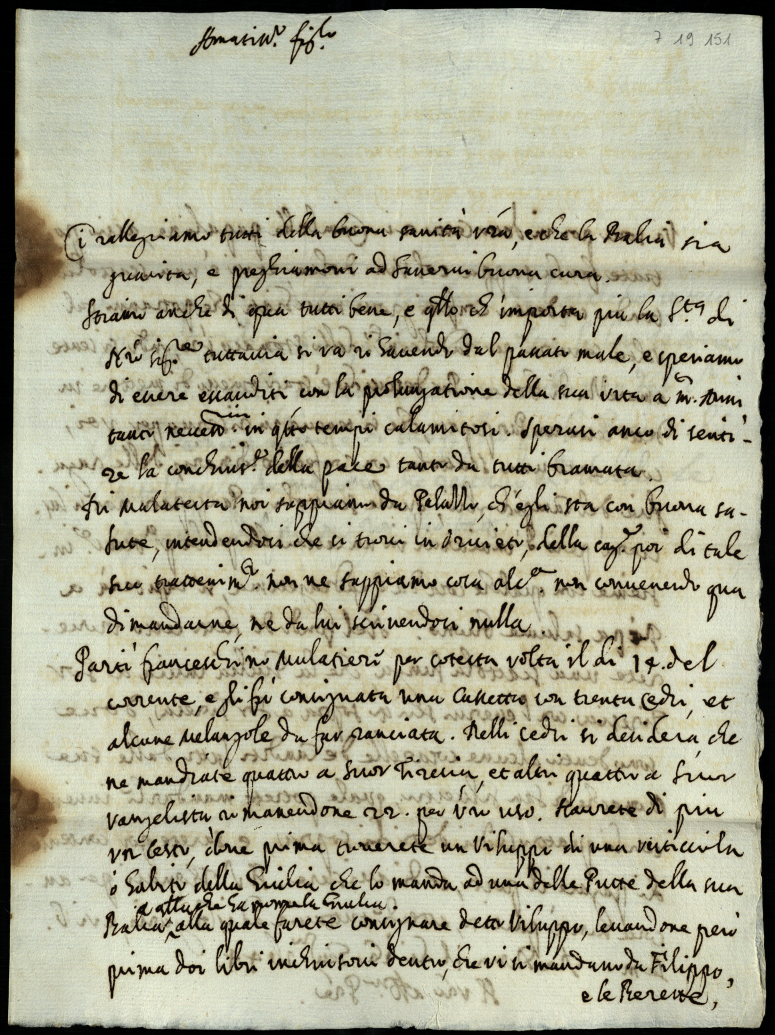 Amatiss.º fig.lo
7 19 151
Ci rallegriamo tutti della buona sanità vr̃a, e che la Balia sia
guarita, e preghiamovi ad haverne buona cura.
Stiamo anche di qua tutti bene, e q̃llo ch'importa più la S.tà di
Nrõ Sig.re tuttavia si va rihavendo dal passato male, e speriamo
di essere essauditi con la prolungatione della sua vita a
tanto necess.ria in q̃sti tempi calamitosi. Sperasi anco di senti-
re la conclus.e della pace tanto da tutti bramata.
Di Malatesta noi sappiamo da ch'egli sta con buona sa-
lute, intendendosi che si trovi in Orvieto, della cag.e poi di tale
suo trattenim.to non ne sappiamo cosa alc.a non convenendo qua
dimandarne, ne da lui scrivendosi nulla.
Partì Franceschino Mulatiero per cotesta volta il di 14. del
corrente, e gli fù consignata una Cassetta con trenta Cedri, et
alcune Melangole da far ranciata. Delli Cedri si desidera, che
ne mandiate quattro a Suor et altri quattro a Suor
Vangelista rimanendone 22. per vrõ uso. Haverete di più
un Cesto, dove prima troverete un Viluppo di una vesticciola
ò habito della Giulia che lo manda ad una delle Putte della sua
Balia, a q̃lla che ha nome la Giulia.
alla quale farete consignare detto Viluppo, levandone però
prima doi libri inchiusovi dentro, che vi si mandano da Filippo,
e le Berette,